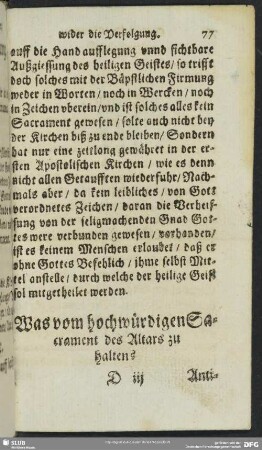 wider die Verfolgung. 77
auff die Hand aufflegung vnnd sichtbare
Außgiessung des heiligen Geistes / so trifft
doch solches mit der Bäpstlichen Firmung
weder in Worten / noch in Wercken / noch
in Zeichen vberein / vnd ist solches alles kein
Sacrament gewesen / solte auch nicht bey
der Kirchen biß zu ende bleiben / Sondern
hat nur eine zeitlang gewähret in der er-
sten Apostolischen Kirchen / wie es denn
nicht allen Getaufften wiederfuhr / Nach-
mals aber / da kein leibliches / von Gott
verordnetes Zeichen / daran die Verheis-
sung von der seligmachenden Gnad Got-
tes were verbunden gewesen / vorhanden /
ist es keinem Menschen erlaubet / daß er
ohne Gottes Befehlich / jhme selbst Mit-
tel anstelle / durch welche der heilige Geist
sol mitgetheilet werden.
Was vom hochwürdigen Sa-
crament des Altars zu
halten?
D iij Anti-
SLUB
DFG